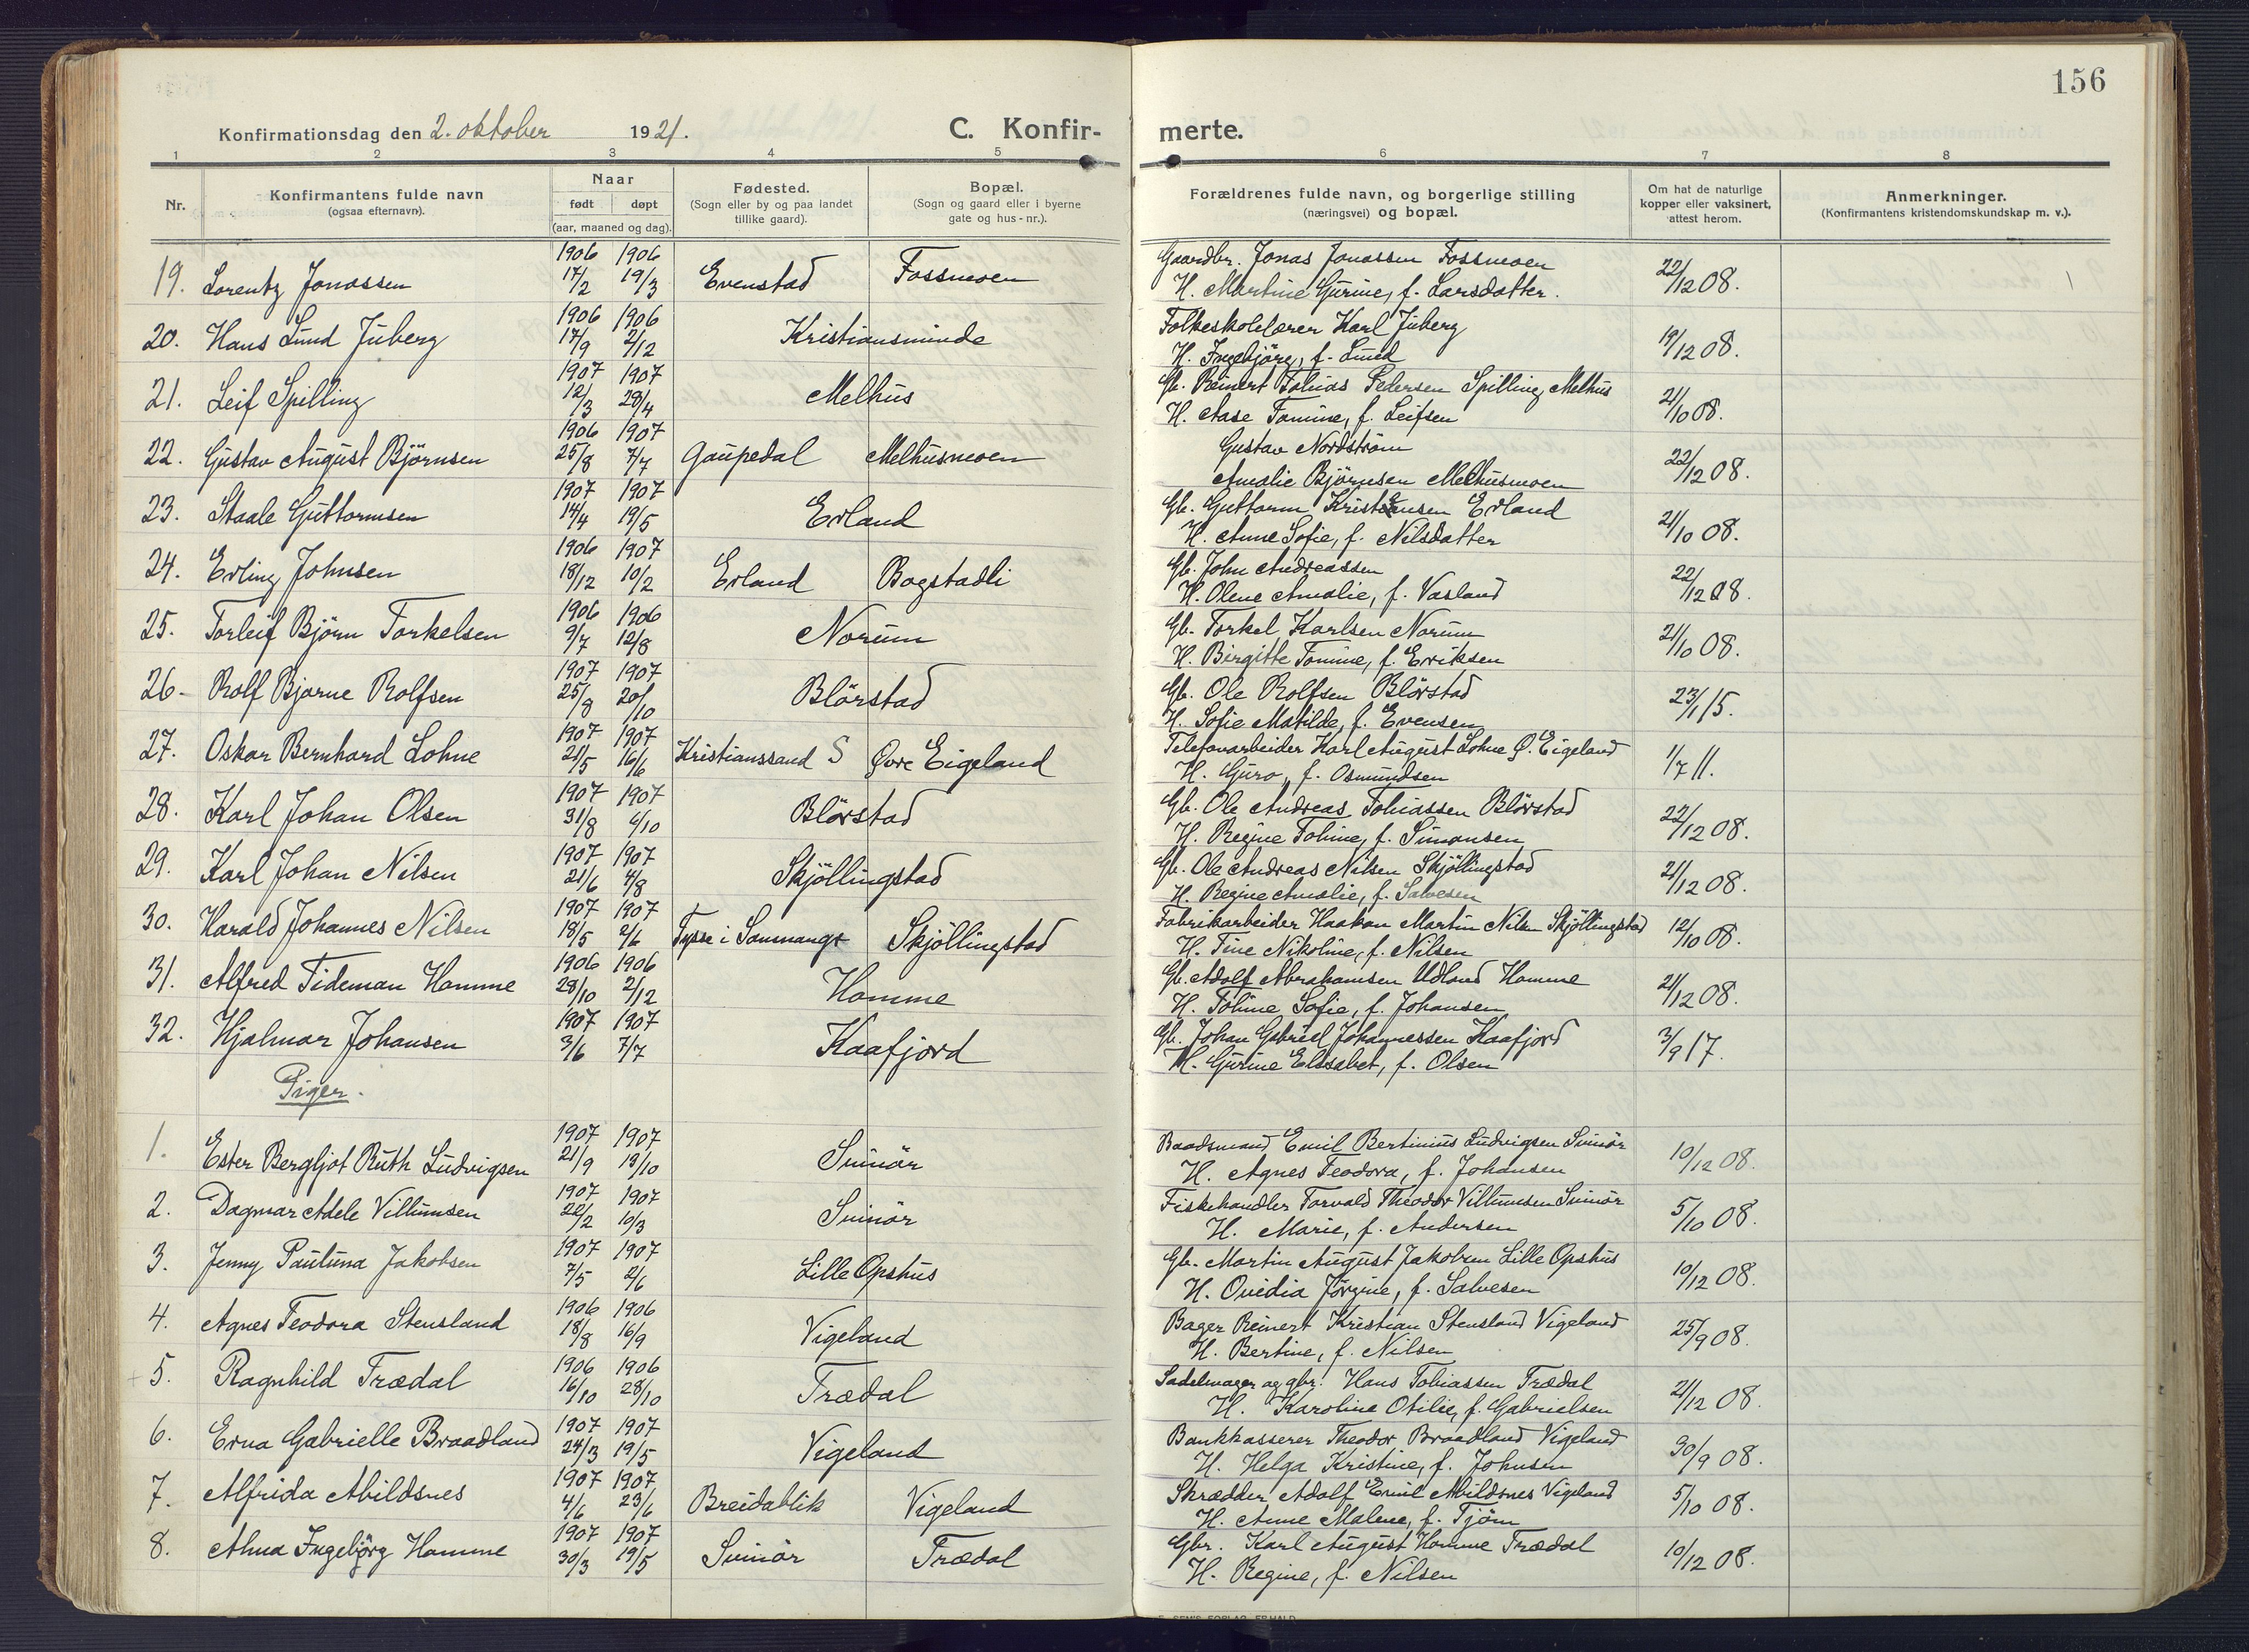 156
Konfirmationsdag den 2. oktober 1921.
C. Konfir-
merte.
1 2 3 4 5 6 7 8
Nr.
Konfirmantens fulde navn
(ogsaa efternavn).
Naar
født døpt
(aar, maaned og dag).
Fødested.
(Sogn eller by og paa landet
tillike gaard).
Bopæl.
(Sogn og gaard eller i byerne
gate og hus-nr.).
Forældrenes fulde navn, og borgerlige stilling
(næringsvei) og bopæl.
Om hat de naturlige
kopper eller vaksinert,
attest herom.
Anmerkninger.
(Konfirmantens kristendomskundskap m. v.).
1906 1906 Gaardbr. Jonas Jonassen Fossmoen
19. Lorentz Jonassen 17/2 19/3 Evenstad Fossmoen H. Martine Gurine, f. Larsdatter. 22/12 08.
1906 1906 Folkeskolelærer Karl Juberg
20. Hans Lund Juberg 17/9 2/12 Kristiansminde H. Ingebjörg, f. Lund 19/12 08.
1907 1907 Gb. Reinert Tobias Pedersen Spilling, Melhus
21. Leif Spilling 12/3 28/4 Melhus H. Aase Tomine, f. Leifsen 21/10 08.
1906 1907 Gustav Nordström
22. Gustav August Björnsen 25/8 7/7 Gaupedal Melhusmoen Amalie Björnsen Melhusmoen 22/12 08.
1907 1907 Gb. Guttorm Kristensen Erland
23. Staale Guttormsen 14/4 19/5 Erland H. Anne Sofie, f. Nilsdatter 21/10 08.
1906 1907 Gb. John Andreassen
24. Erling Johnsen 18/12 10/2 Erland Bogstadli H. Olene Amalie, f. Vasland 22/12 08.
1906 1906 Gb. Torkel Karlsen Norum
25. Torleif Björn Torkelsen 9/7 12/8 Norum H. Birgitte Tomine, f. Eriksen 21/10 08.
1907 1907 Gb. Ole Rolfsen Blörstad
26. Rolf Bjarne Rolfsen 25/8 20/10 Blörstad H. Sofie Matilde, f. Evensen 23/1 15.
1907 1907 Telefonarbeider Karl August Lohne Ø. Eigeland
27. Oskar Bernhard Lohne 21/5 16/6 Kristianssand S Øvre Eigeland H. Guro, f. Osmundsen 1/7 11.
1907 1907 Gb. Ole Andreas Tobiassen Blörstad
28. Karl Johan Olsen 31/8 6/10 Blörstad H. Regine Tobine, f. Simonsen 22/12 08.
1907 1907 Gb. Ole Andreas Nilsen Skjöllingstad
29. Karl Johan Nilsen 21/6 4/8 Skjöllingstad H. Regine Amalie, f. Salvesen 21/12 08.
1907 1907 Fabrikarbeider Haakon Martin Nilsen Skjöllingstad
30. Harald Johannes Nilsen 18/5 2/6 Tysse i Samnanger Skjöllingstad H. Tine Nikoline, f. Nilsen 12/10 08.
1906 1906 Gb. Adolf Abrahamsen Udland Homme
31. Alfred Tideman Homme 28/10 2/12 Homme H. Tobine Sofie, f. Johansen 21/12 08.
1907 1907 Gb. Johan Gabriel Johannessen Kaafjord
32. Hjalmar Johansen 3/6 7/7 Kaafjord H. Gurine Elisabet, f. Olsen 3/9 17.
Piger.
1907 1907 Baadsmand Emil Bertinius Ludvigsen Svinör
1. Ester Bergljot Ruth Ludvigsen 21/9 13/10 Svinör H. Agnes Teodora, f. Johansen 10/12 08.
1907 1907 Fiskehandler Torvald Theodor Villumsen Svinör
2. Dagmar Adele Villumsen 22/2 10/3 Svinör H. Marie, f. Andersen 5/10 08.
1907 1907 Gb. Martin August Jakobsen Lille Opshus
3. Jenny Paulina Jakobsen 7/5 2/6 Lille Opshus H. Ovidia Jörgine, f. Salvesen 10/12 08.
1906 1906 Bager Reinert Kristian Stensland Vigeland
4. Agnes Teodora Stensland 18/8 16/9 Vigeland H. Bertine, f. Nilsen 25/9 08.
1906 1906 Sadelmager og gbr. Hans Tobiassen Trædal
5. Ragnhild Trædal 16/10 28/10 Trædal H. Karoline Otilie, f. Gabrielsen 21/12 08.
1907 1907 Bankkasserer Theodor Braadland Vigeland
6. Erna Gabrielle Braadland 24/3 19/5 Vigeland H. Helga Kristine, f. Johnsen 30/9 08.
1907 1907 Skrædder Adolf Emil Abildsnes Vigeland
7. Alfrida Abildsnes 4/6 23/6 Breidablik Vigeland H. Anne Malene, f. Tjöm 5/10 08.
1907 1907 Gbr. Karl August Homme Trædal
8. Alma Ingebjörg Homme 30/3 19/5 Svinör Trædal H. Regine, f. Nilsen 10/12 08.